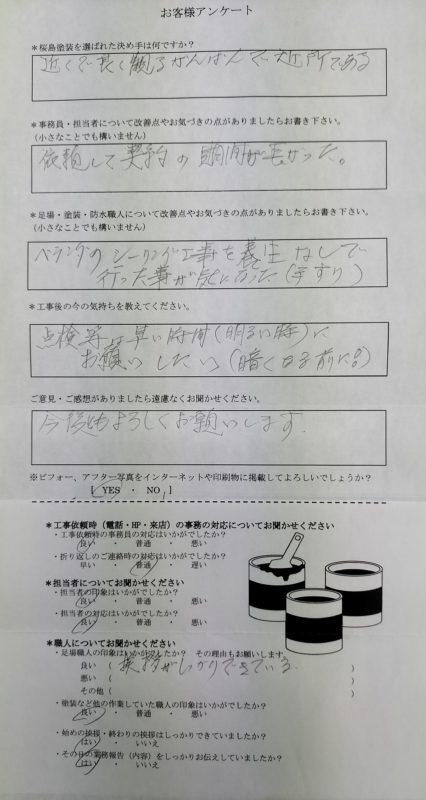 お客様アンケート
＊桜島塗装を選ばれた決め手は何ですか？
近くで良く観るかんばんで近所である
＊事務員・担当者について改善点やお気づきの点がありましたらお書き下さい。
（小さなことでも構いません）
依頼して契約の期間が長かった。
＊足場・塗装・防水職人について改善点やお気づきの点がありましたらお書き下さい。
（小さなことでも構いません）
ベランダのシーリング工事を養生なしで
行った事が気になった（手すり）
＊工事後の今の気持ちを教えてください。
点検等は早い時間（明るい時）に
お願いしたい（暗くなる前に。）
ご意見・ご感想がありましたら遠慮なくお聞かせください。
今後もよろしくお願いします。
※ビフォー、アフター写真をインターネットや印刷物に掲載してよろしいでしょうか？
[ YES ・ NO ]
＊工事依頼時（電話・HP・来店）の事務の対応についてお聞かせください
・工事依頼時の事務員の対応はいかがでしたか？
良い ・ 普通 ・ 悪い
・折り返しのご連絡時の対応はいかがでしたか？
早い ・ 普通 ・ 遅い
＊担当者についてお聞かせください
・担当者の印象はいかがでしたか？
良い ・ 普通 ・ 悪い
・担当者の対応はいかがでしたか？
良い ・ 普通 ・ 悪い
＊職人についてお聞かせください
・足場職人の印象はいかがでしたか？ その理由もお願いします
良い （ 挨拶がしっかりできている. ）
悪い （ ）
その他（ ）
・塗装など他の作業していた職人の印象はいかがでしたか？
良い ・ 普通 ・ 悪い
・始めの挨拶・終わりの挨拶はしっかりできていましたか？
はい ・ いいえ
・その日の業務報告（内容）をしっかりお伝えしていましたか？
はい ・ いいえ